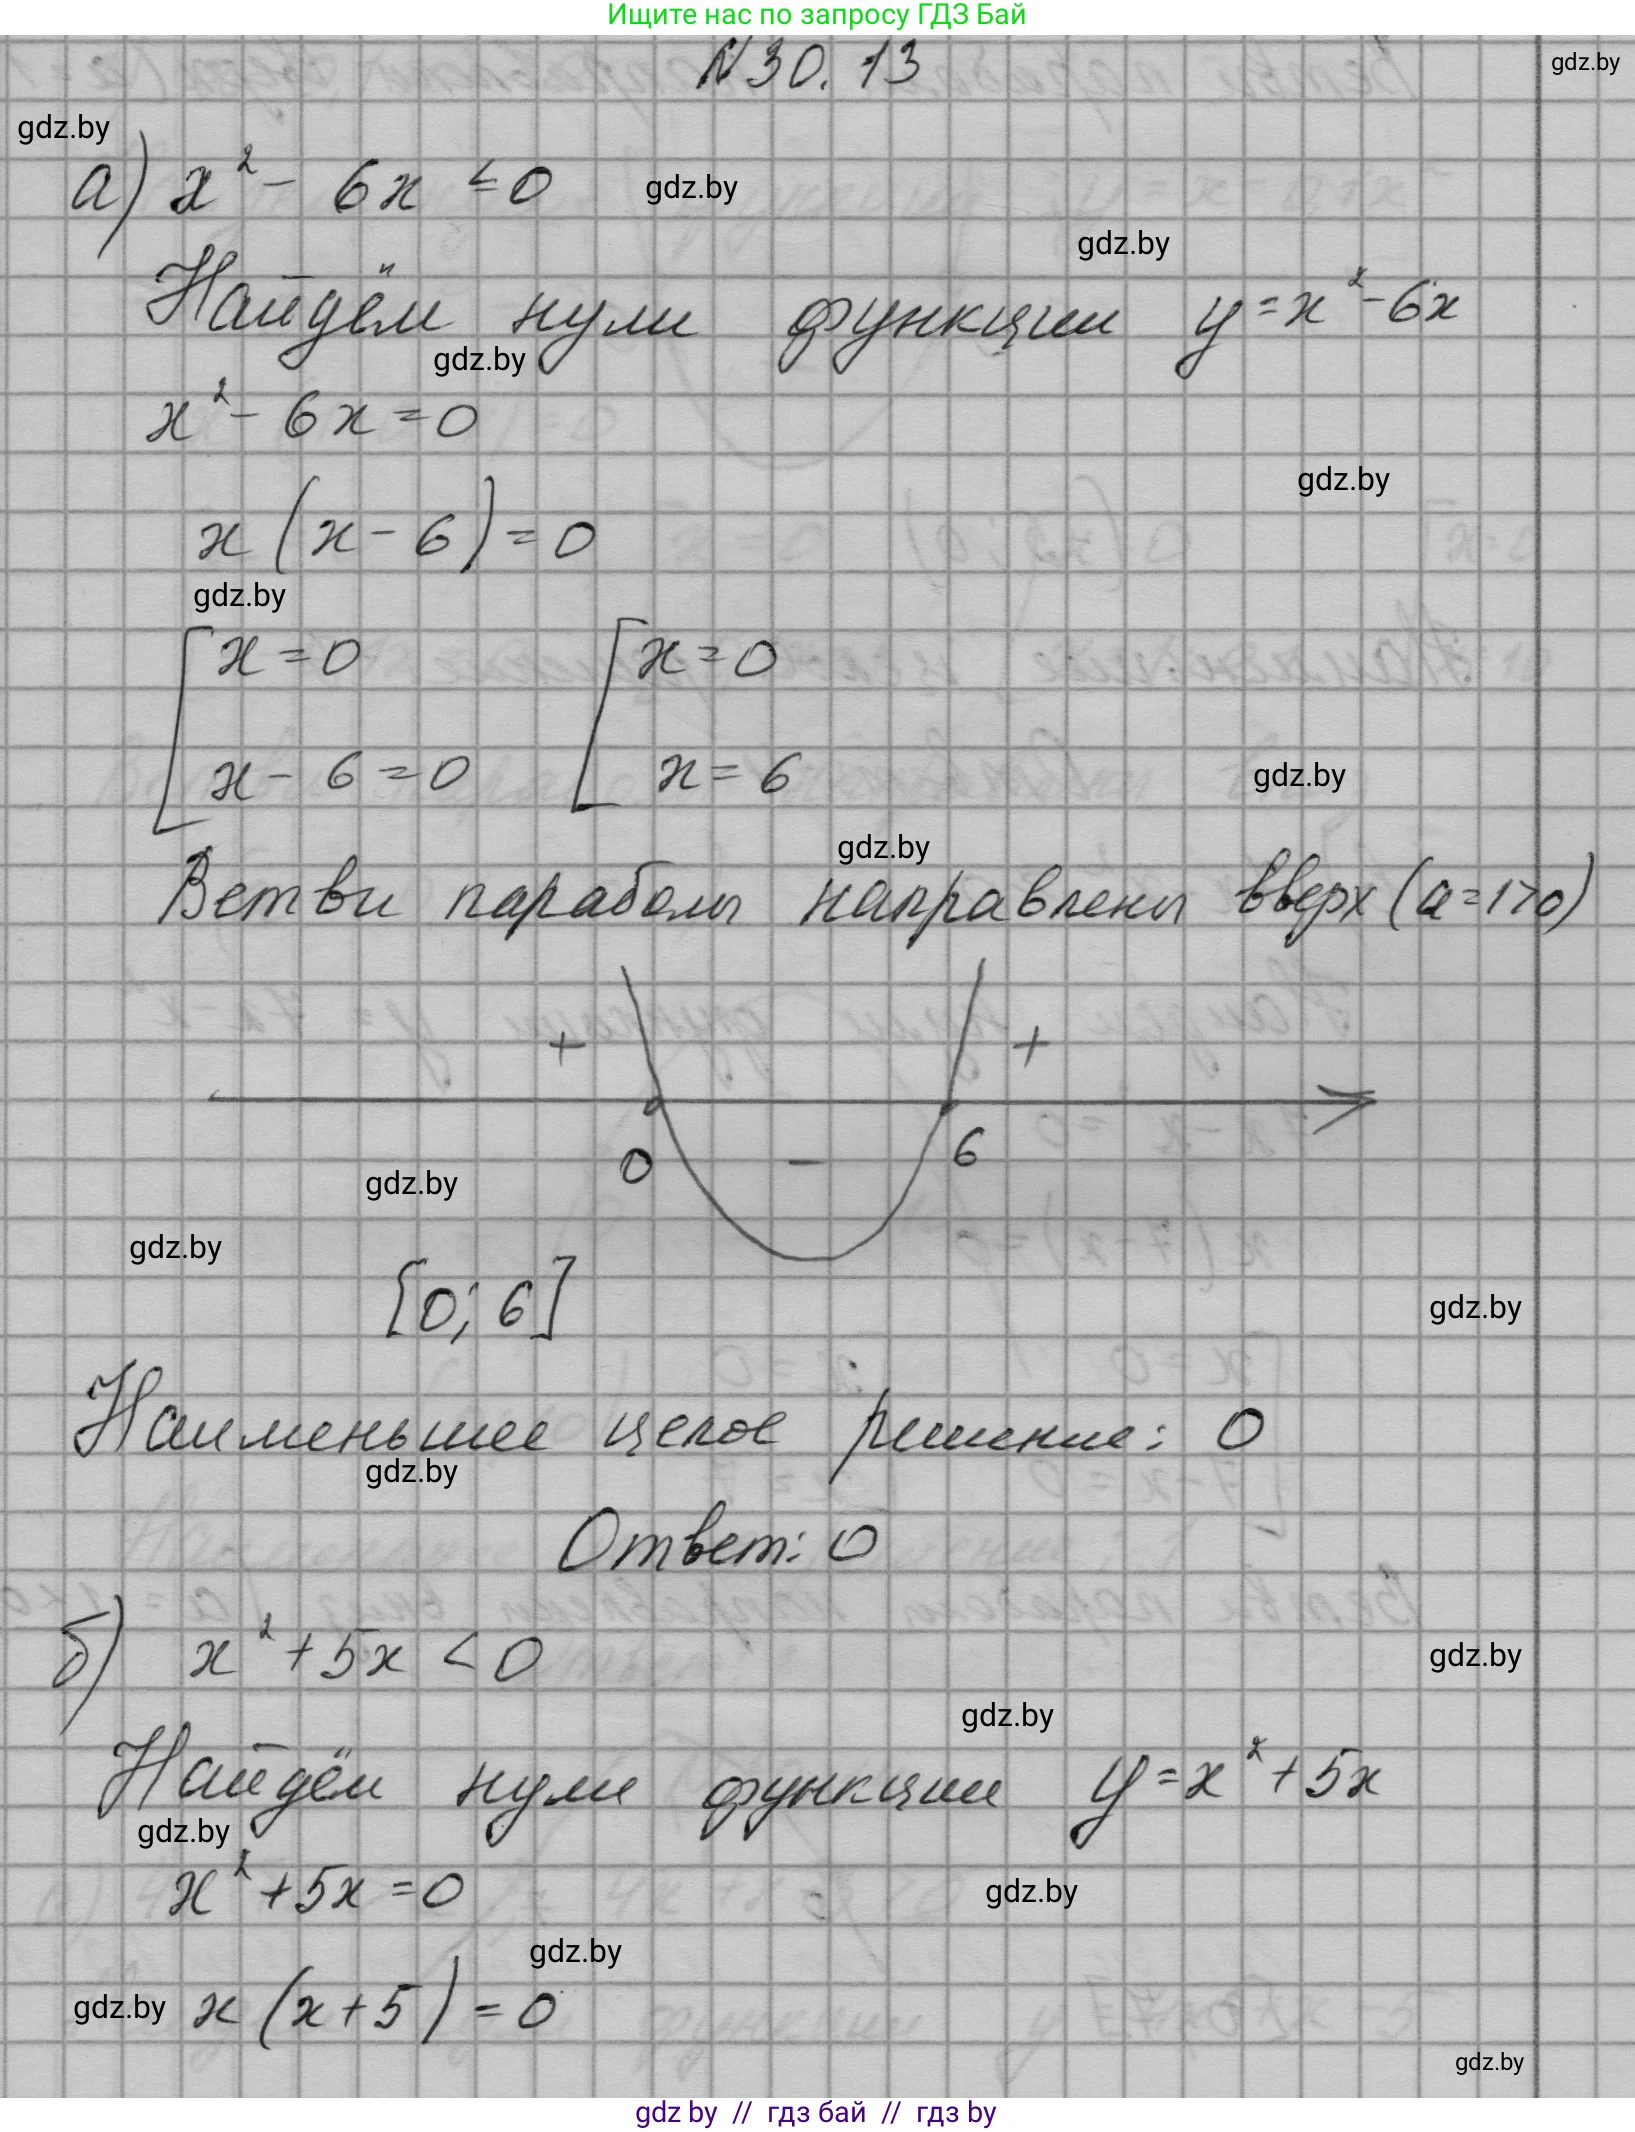 Ищите нас по запросу ГДЗ Бай
N30.13
gdz.by
gdz.by
а) x² - 6x ≤ 0
gdz.by
gdz.by
Найдём нули функции y = x² - 6x
gdz.by
x² - 6x = 0
gdz.by
x (x - 6) = 0
gdz.by
[ x = 0 [ x = 0
x - 6 = 0 x = 6
gdz.by
gdz.by
Ветви параболы направлены вверх (a = 1 > 0)
+ +
0 - 6
gdz.by
gdz.by
[0; 6]
gdz.by
Наименьшее целое решение: 0
gdz.by
Ответ: 0
б) x² + 5x < 0
gdz.by
gdz.by
Найдём нули функции y = x² + 5x
gdz.by
x² + 5x = 0
gdz.by
gdz.by
gdz.by x (x + 5) = 0
gdz.by
gdz by // гдз бай // гдз by